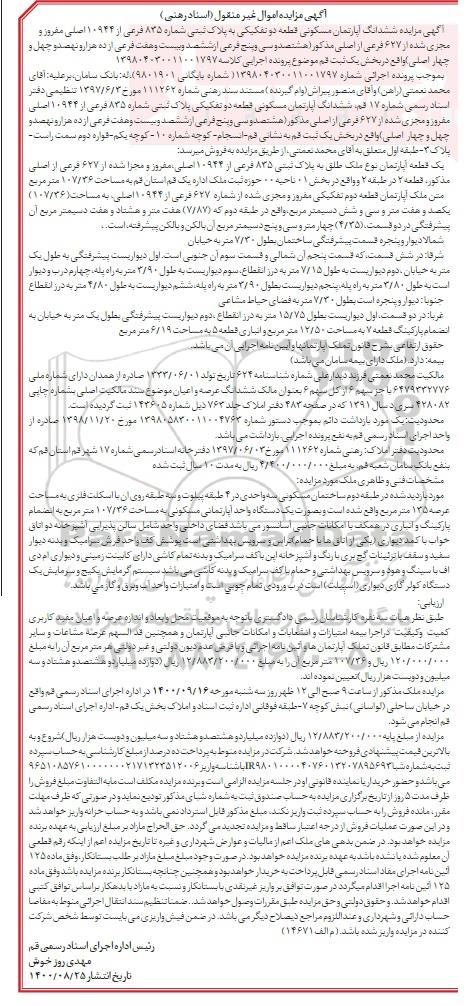 آگهی مزایده اموال غیر منقول (اسناد رهنی)
آگهی مزایده ششدانگ آپارتمان مسکونی قطعه دو تفکیکی به پلاک ثبتی شماره ۸۳۵ فرعی از ۱۰۹۴۴ اصلی مفروز و
مجزی شده از ۶۲۷ فرعی از اصلی مذکور (هشتصد و سی و پنج فرعی از ششصد و بیست و هفت فرعی از ده هزار و نهصد و چهل و
چهار اصلی) واقع در بخش یک ثبت قم موضوع پرونده اجرایی کلاسه ۱۳۹۸۰۴۰۳۰۰۱۱۰۰۱۷۹۷
بموجب پرونده اجرائی شماره ۱۳۹۸۰۴۰۳۰۰۱۱۰۰۱۷۹۷ ( شماره بایگانی ۹۸۰۱۹۰۱)، له: بانک سامان، برعلیه: آقای
محمد نعمتی (راهن) و آقای منصور پیراش (وام گیرنده) مستند سند رهنی شماره ۱۱۱۲۶۲ مورخ ۱۳۹۷/۶/۳ تنظیمی دفتر
اسناد رسمی شماره ۱۷ قم، ششدانگ آپارتمان مسکونی قطعه دو تفکیکی پلاک ثبتی شماره ۸۳۵ فرعی از ۱۰۹۴۴ اصلی
مفروز و مجزی شده از ۶۲۷ فرعی از اصلی مذکور (هشتصد و سی و پنج فرعی از ششصد و بیست و هفت فرعی از ده هزار و نهصد و
چهل و چهار اصلی) واقع در بخش یک ثبت قم به نشانی قم-انسجام- کوچه شماره ۱۰- کوچه یکم-قواره دوم سمت راست-
پلاک ۳- طبقه اول متعلق به آقای محمد نعمتی، از طریق مزایده به فروش میرسد:
یک قطعه آپارتمان نوع ملک طلق به پلاک ثبتی ۸۳۵ فرعی از ۱۰۹۴۴ اصلی، مفروز و مجزا شده از ۶۲۷ فرعی از اصلی
مذکور، قطعه ۲ در طبقه ۲ و واقع در بخش ۰۱ ناحیه ۰۰ حوزه ثبت ملک اداره یک قم استان قم به مساحت ۱۰۷/۳۶ متر مربع
متن ملک آپارتمان قطعه دوم تفکیکی مفروز و مجزی شده از شماره ۶۲۷ فرعی از ۱۰۹۴۴ اصلی، به مساحت (۱۰۷/۳۶)
یکصد و هفت متر و سی و شش دسیمتر مربع، واقع در طبقه دوم که (۷/۸۷) هفت متر و هشتاد و هفت دسیمتر مربع آن
پیشرفتگی در دو قسمت، (۴/۳۵) چهار متر و سی و پنج دسیمتر مربع آن بالکن و بالکن پیشرفته است. ،
شمالا دیوار و پنجره قسمت پیشرفتگی ساختمان بطول ۷/۳۰ متر به خیابان
شرقا: در شش قسمت، که قسمت پنجم آن شمالی و قسمت سوم آن جنوبی است. اول دیواریست پیشرفتگی به طول یک
متر به خیابان ، دوم دیواریست به طول ۷/۱۵ متر به درز انقطاع، سوم دیواریست به طول ۳/۹۰ متر به راه پله، چهارم درب و دیوار
است به طول ۳/۸۰ متر به راه پله، پنجم دیواریست بطول ۳/۹۰ متر به راه پله، ششم دیواریست به طول ۴/۸۰ متر به درز انقطاع
جنوبا: دیوار و پنجره است بطول ۷/۳۰ متر به فضای حیاط مشاعی
غربا: در دو قسمت، اول دیواریست بطول ۱۵/۷۵ متر به درز انقطاع ، دوم دیواریست پیشرفتگی بطول یک متر به خیابان به
انضمام پارکینگ قطعه ۷ به مساحت ۱۲/۵۰ متر مربع و انباری قطعه ۵ به مساحت ۶/۱۹ متر مربع
حقوق ارتفاعی بشرح قانون تملک آپارتمانها و آیین نامه اجرایی آن می باشد.
بیمه: دارد. (ملک دارای بیمه سامان می باشد)
مالکیت محمد نعمتی فرزند دیدار علی شماره شناسنامه ۶۲۴ تاریخ تولد ۱۳۳۳/۰۶/۰۱ صادره از همدان دارای شماره ملی
۶۴۷۹۳۳۲۷۷۶ با جز سهم ۶ از کل سهم ۶ بعنوان مالک ششدانگ عرصه و اعیان موضوع سند مالکیت اصلی بشماره چاپی
۴۲۸۰۸۲ سری د سال ۱۳۹۱ که در صفحه ۴۸۳ دفتر املاک جلد ۷۶۳ ذیل شماره ۱۴۳۶۰۵ ثبت گردیده است.
محدودیت: یک مورد بازداشت دائم بموجب دستور شماره ۱۳۹۸۰۵۸۳۰۰۱۱۰۰۴۷۶۳ مورخ ۱۳۹۸/۱۱/۲۰ صادره از
واحد اجرای اسناد رسمی قم به نفع پرونده اجرایی، بازداشت می باشد.
محدودیت دفتر املاک: رهنی شماره ۱۱۱۲۶۲ مورخ ۱۳۹۷/۰۶/۰۳ دفترخانه اسناد رسمی شماره ۱۷ شهر قم استان قم که
بنفع بانک سامان شعبه قم، به مبلغ ۴/۴۰۰/۰۰۰/۰۰۰ ریال به مدت ۱۰ سال ثبت شده
مشخصات فنی و ظاهری ملک مورد مزایده:
مورد بازدید شده در طبقه دوم ساختمان مسکونی سه واحدی در ۴ طبقه پیلوت و سه طبقه روی آن با اسکلت فلزی به مساحت
عرصه ۱۳۵ متر مربع واقع شده است و بصورت یک دستگاه واحد آپارتمانی مسکونی به مساحت ۱۰۷/۳۶ متر مربع به انضمام
پارکینگ و انباری در همکف با امکانات جانبی آسانسور می باشد فضای داخلی واحد شامل سالن پذیرایی آشپزخانه دو اتاق
خواب با کمد دیواری (یکی از اتاق ها با حمام) تراس و سرویس بهداشتی است پوشش کف واحد فرش سرامیک و بدنه دیوار
سفید و سقف با تزئینات گچ بری با رنگ و آشپزخانه اپن با کف سرامیک و بدنه تمام کاشی دارای کابینت زمینی و دیواری ام دی
اف با سینگ و هود و سرویس بهداشتی و حمام با کف سرامیک و بدنه کاشی می باشد سیستم گرمایش پکیج و سرمایش یک
دستگاه کولر گازی دیواری (اسپیلت) است درب ورودی تمام چوبی است و امتیازات واحد آب و برق و گاز می باشد.
ارزیابی:
طبق نظر هیات سه نفره کارشناسان رسمی دادگستری باتوجه به موقعیت محل وابعاد و اندازه عرصه و اعیان مفید کاربری
کمیت وکیفیت در اجرا بیمه امتیازات و انشعابات و امکانات جانبی آپارتمان و همچنین قد السهم عرصه مشاعات و سایر
مشترکات مطابق قانون تملک آپارتمان ها و آئین نامه اجرائی و با فرض عدم دیون دولتی و غیر دولتی هر متر مربع آن را به مبلغ
۱۲۰/۰۰۰/۰۰۰ ریال و ۱۰۷/۳۶ متر مربع آن را به مبلغ ۱۲/۸۸۳/۲۰۰/۰۰۰ ریال (دوازده میلیارد و هشتصد و هشتاد و سه
میلیون و دویست هزار ریال) تعیین نموده اند.
مزایده ملک مذکور از ساعت ۹ صبح الی ۱۲ ظهر روز سه شنبه مورخه ۱۴۰۰/۰۹/۱۶ در اداره اجرای اسناد رسمی قم واقع
در خیابان ساحلی (لواسانی) نبش کوچه ۷- طبقه فوقانی اداره ثبت اسناد و املاک بخش یک قم- اداره اجرای اسناد رسمی
قم انجام می شود.
مزایده از مبلغ پایه ۱۲/۸۸۳/۲۰۰/۰۰۰ ریال (دوازده میلیارد و هشتصد و هشتاد و سه میلیون و دویست هزار ریال) شروع و به
بالاترین قیمت پیشنهادی فروخته خواهد شد. شرکت در مزایده منوط به پرداخت ده درصد از مبلغ کارشناسی به حساب سپرده
ثبت به شماره شبا IR980100004076013207895693 باشناسه واریز 965108576100000002171323512006
می باشد و حضور خریدار یا نماینده قانونی او در جلسه مزایده الزامی است و برنده مزایده مکلف است مابه التفاوت مبلغ فروش را
ظرف مدت ۵ روز از تاریخ برگزاری مزایده به حساب صندوق ثبت به شماره شبای مذکور تودیع نماید و در صورتی که ظرف مهلت
مقرر، مانده فروش را به حساب سپرده ثبت واریز نکند، مبلغ مذکور قابل استرداد نمی باشد و به حساب خزانه واریز خواهد شد
و در این صورت عملیات فروش از درجه اعتبار ساقط و مزایده تجدید می گردد. حق الحراج مازاد بر مبلغ ارزیابی به عهده برنده
مزایده خواهد بود. در ضمن بدهی های ملک اعم از مالیات و عوارض شهرداری و غیره تا تاریخ مزایده اعم از اینکه رقم قطعی
آن معلوم شده یا نشده باشد به عهده برنده مزایده خواهد بود. در صورت وجود مبلغ مازاد بر طلب بستانکار، وفق ماده ۱۲۵
آئین نامه اجرای مفاد اسناد رسمی قابل پرداخت به خریدار خواهد بود و همچنین چنانچه بستانکار برنده مزایده باشد وفق ماده
۱۲۵ آئین نامه اجرا اقدام میگردد در صورت توافق بر واریز غیرنقدی با بستانکار و نسبت به مازاد با بدهکار براساس توافق کتبی
اقدام خواهد شد. و حقوق دولتی و حق مزایده طبق مقررات وصول خواهد شد. ضمنا تنظیم سند انتقال اجرائی منوط به مفاصا
حساب دارائی و شهرداری و عنداللزوم مراجع ذیصلاح دیگر می باشد. در ضمن فیش واریزی می بایست توسط شخص شرکت
کننده در مزایده واریز شده باشد. (م الف ۱۴۶۷۱)
رئیس اداره اجرای اسناد رسمی قم
مهدی روز خوش
تاریخ انتشار ۱۴۰۰/۰۸/۲۵